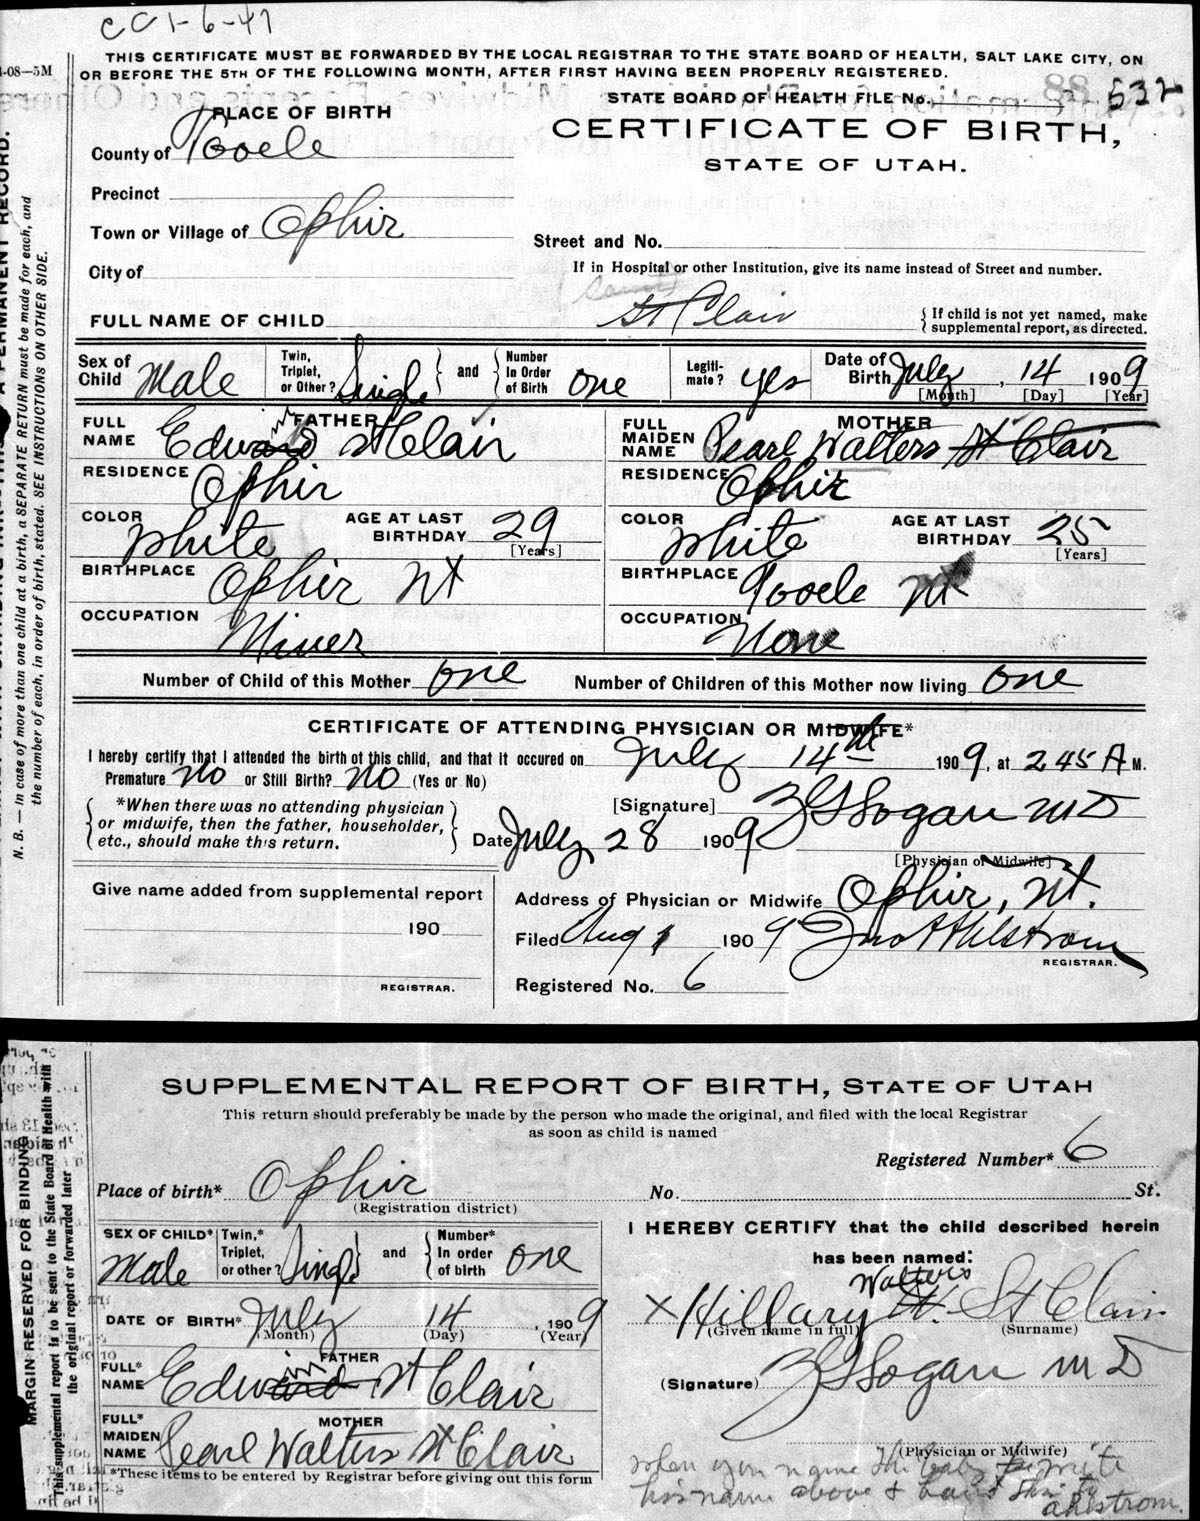 CC 1-6-47
THIS CERTIFICATE MUST BE FORWARDED BY THE LOCAL REGISTRAR TO THE STATE BOARD OF HEALTH, SALT LAKE CITY, ON
OR BEFORE THE 5TH OF THE FOLLOWING MONTH, AFTER FIRST HAVING BEEN PROPERLY REGISTERED.
-08—5M
STATE BOARD OF HEALTH FILE No. 532
PLACE OF BIRTH
CERTIFICATE OF BIRTH,
STATE OF UTAH.
County of Tooele
Precinct
Town or Village of Ophir
Street and No.
City of
If in Hospital or other Institution, give its name instead of Street and number.
(Saint)
FULL NAME OF CHILD St Clair
{ If child is not yet named, make
supplemental report, as directed.
Sex of Child Male
Twin, Triplet, or Other? Single } and { Number In Order of Birth one
Legiti-mate? yes
Date of Birth July, 14 1909
[Month] [Day] [Year]
FATHER
FULL NAME Edwin St Clair
RESIDENCE Ophir
COLOR White AGE AT LAST BIRTHDAY 29
[Years]
BIRTHPLACE Ophir Ut
OCCUPATION Miner
MOTHER
FULL MAIDEN NAME Pearl Walters St Clair
RESIDENCE Ophir
COLOR White AGE AT LAST BIRTHDAY 25
[Years]
BIRTHPLACE Tooele Ut
OCCUPATION None
Number of Child of this Mother one Number of Children of this Mother now living one
CERTIFICATE OF ATTENDING PHYSICIAN OR MIDWIFE*
I hereby certify that I attended the birth of this child, and that it occured on July 14th 1909, at 245 A M.
Premature No or Still Birth? No (Yes or No)
{ *When there was no attending physician
or midwife, then the father, householder,
etc., should make this return. }
[Signature] Logan MD
Date July 28 1909
[Physician or Midwife]
Give name added from supplemental report
190
REGISTRAR.
Address of Physician or Midwife Ophir, Ut.
Filed Aug 1 1909 Jno A Ahlstrom
REGISTRAR.
Registered No. 6
A PERMANENT RECORD.
N. B. — In case of more than one child at a birth, a SEPARATE RETURN must be made for each, and
the number of each, in order of birth, stated. SEE INSTRUCTIONS ON OTHER SIDE.
SUPPLEMENTAL REPORT OF BIRTH, STATE OF UTAH
This return should preferably be made by the person who made the original, and filed with the local Registrar
as soon as child is named
Registered Number* 6
Place of birth* Ophir
(Registration district)
No. St.
SEX OF CHILD* Male
Twin,* Triplet, or other? Singl } and { Number* In order of birth one
DATE OF BIRTH* July 14, 1909
(Month) (Day) (Year)
FATHER
FULL* NAME Edwin St Clair
MOTHER
FULL* MAIDEN NAME Pearl Walters St Clair
*These items to be entered by Registrar before giving out this form
I HEREBY CERTIFY that the child described herein
has been named:
Walters
X Hillary St Clair
(Given name in full) (Surname)
(Signature) Logan MD
(Physician or Midwife)
when you name the baby write
his name above &
Ahlstrom.
MARGIN RESERVED FOR BINDING
This supplemental report is to be sent to the State Board of Health with
the original report or forwarded later